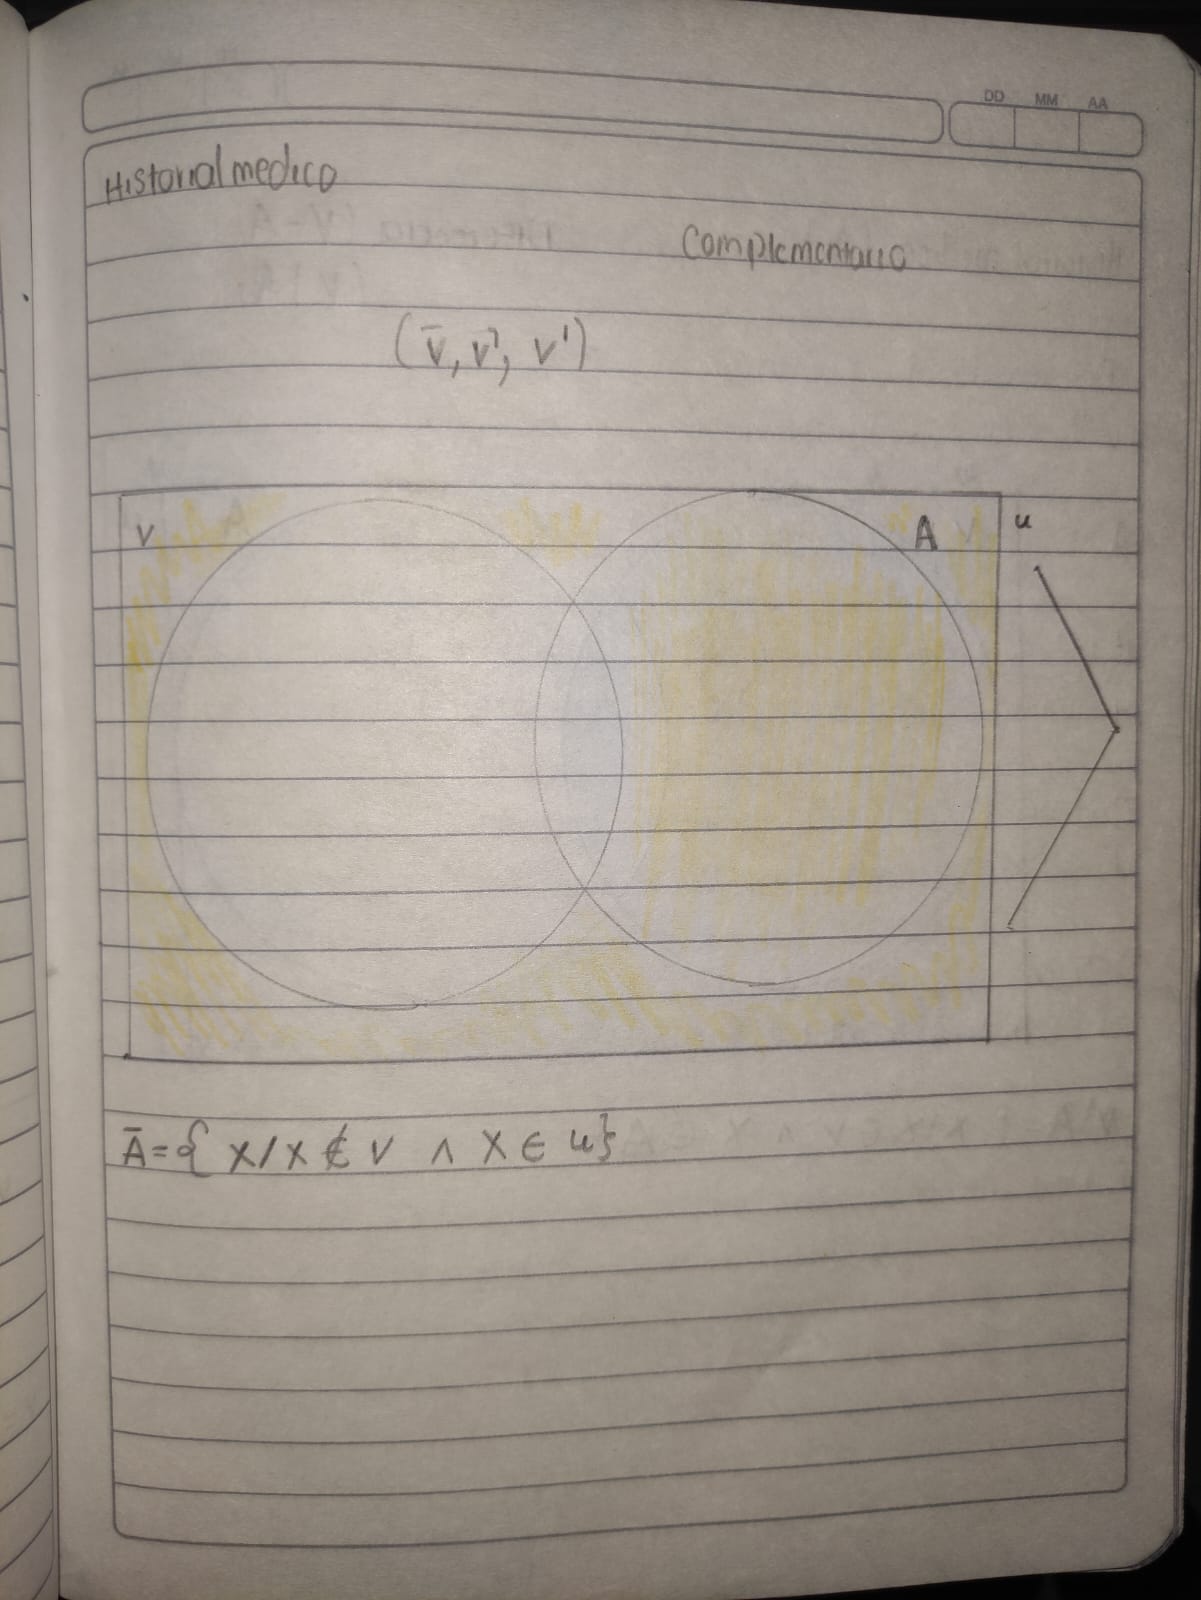 DD MM AA
Historial medico
Complementario
(v̄, v', v')
v A u
Ā = { x/x ∉ v ∧ x ∈ u}